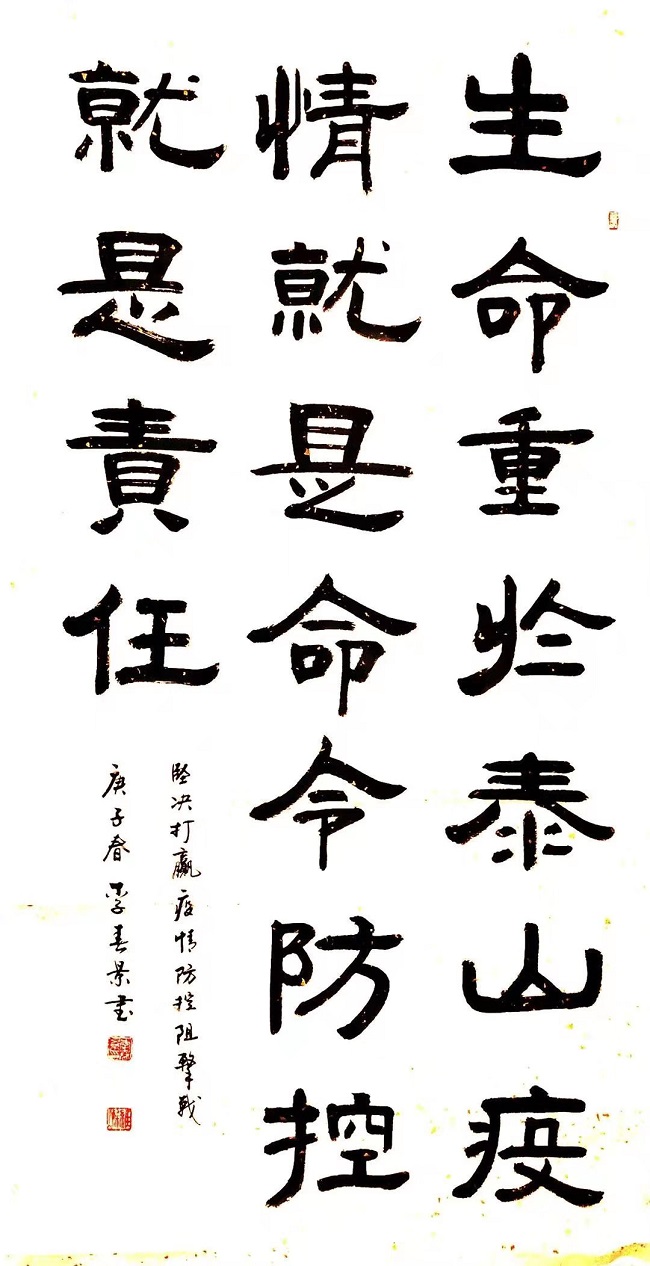 生命重於泰山疫
情就是命令防控
就是責任
堅决打赢疫情防控阻擊戰
庚子春 李春景書